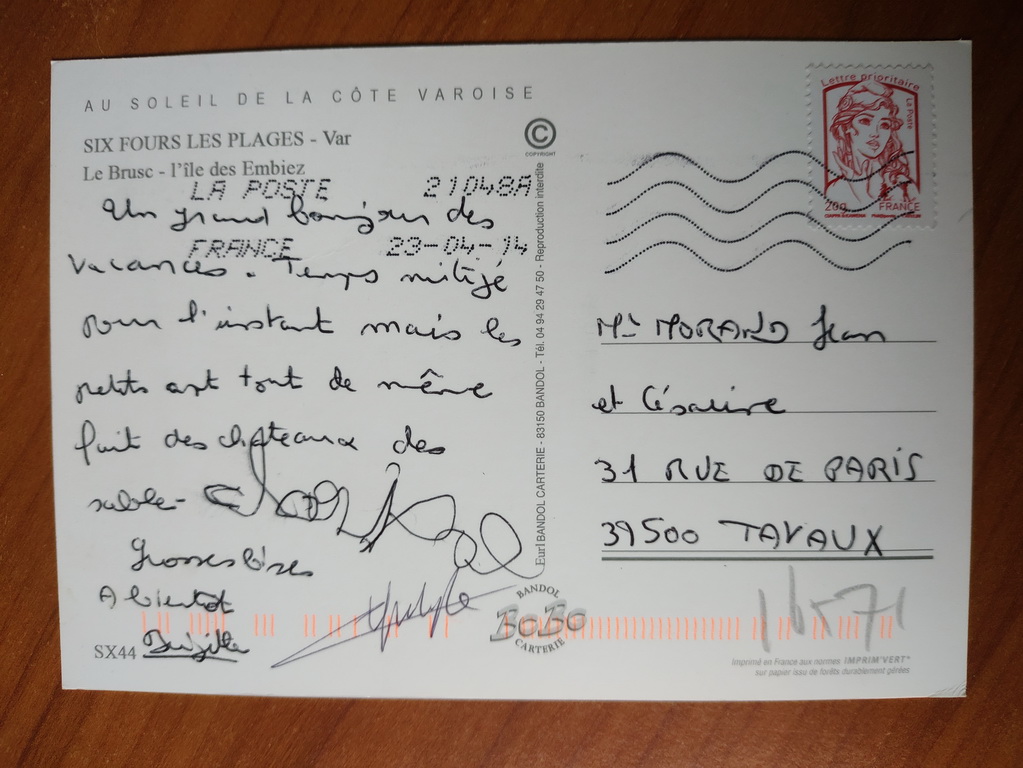 AU SOLEIL DE LA CÔTE VAROISE
SIX FOURS LES PLAGES - Var
Le Brusc - l'île des Embiez
© COPYRIGHT
LA POSTE 21048A
FRANCE 23-04-14
Un grand bonjour des
vacances. Temps mitigé
pour l'instant mais les
petits ont tout de même
fait des chateaux des
sable -
Grosses bises
A bientot
Brigitte
SX44
Eurl BANDOL CARTERIE - 83150 BANDOL - Tél. 04 94 29 47 50 - Reproduction interdite
BANDOL
BoBo
CARTERIE
Lettre prioritaire
La Poste
20g FRANCE
Mr MORAND Jean
et Césarine
31 RUE DE PARIS
39500 TAVAUX
Imprimé en France aux normes IMPRIM'VERT®
sur papier issu de forêts durablement gérées